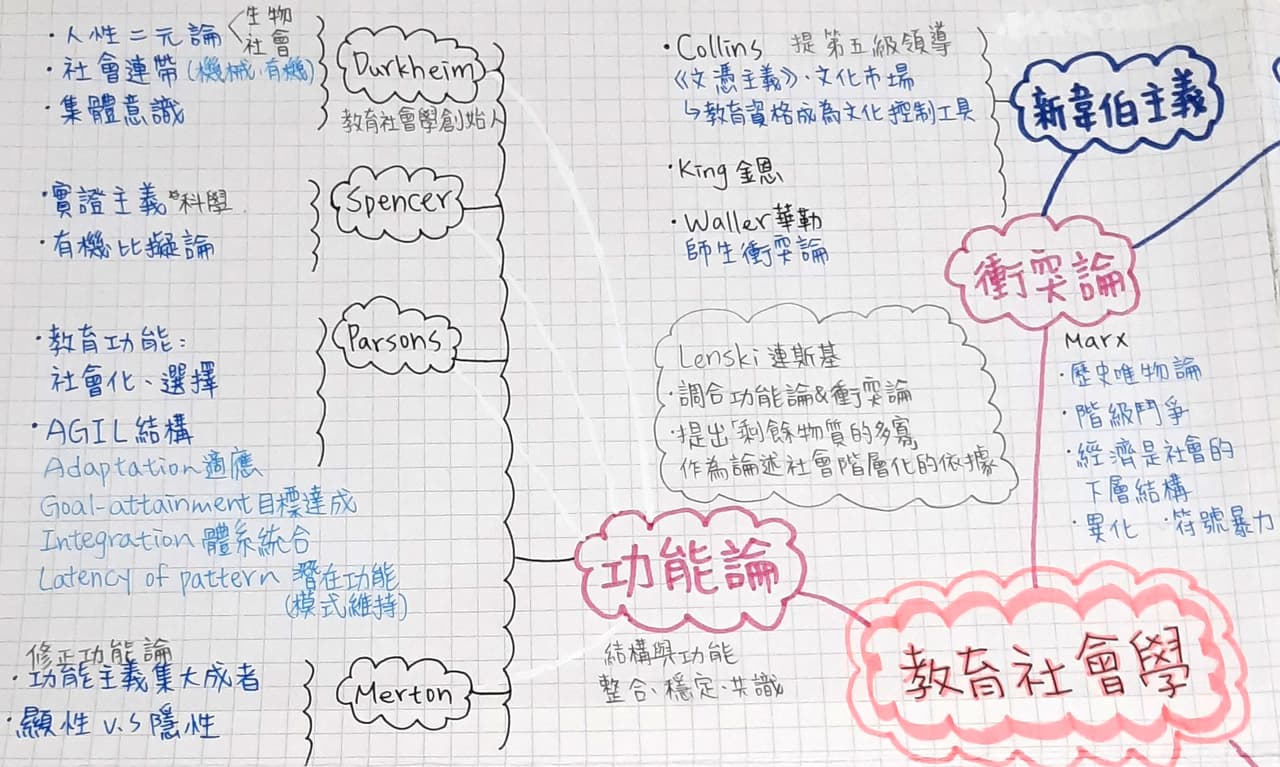 ・人性二元論
生物
社會
・社會連帶(機械、有機)
・集體意識
Durkheim
教育社會學創始人
・實證主義 科學
・有機比擬論
Spencer
・教育功能：
社會化、選擇
・AGIL結構
Adaptation適應
Goal-attainment目標達成
Integration 體系統合
Latency of pattern 潛在功能
(模式維持)
Parsons
修正功能論
・功能主義集大成者
・顯性 v.s 隱性
Merton
・Collins 提第五級領導
《文憑主義》、文化市場
↳教育資格成為文化控制工具
・King 金恩
・Waller 華勒
師生衝突論
新韋伯主義
衝突論
Lenski 連斯基
・調合功能論&衝突論
・提出「剩餘物質的多寡
作為論述社會階層化的依據
Marx
・歷史唯物論
・階級鬥爭
・經濟是社會的
下層結構
・異化 ・符號暴力
功能論
結構與功能
整合、穩定、共識
教育社會學